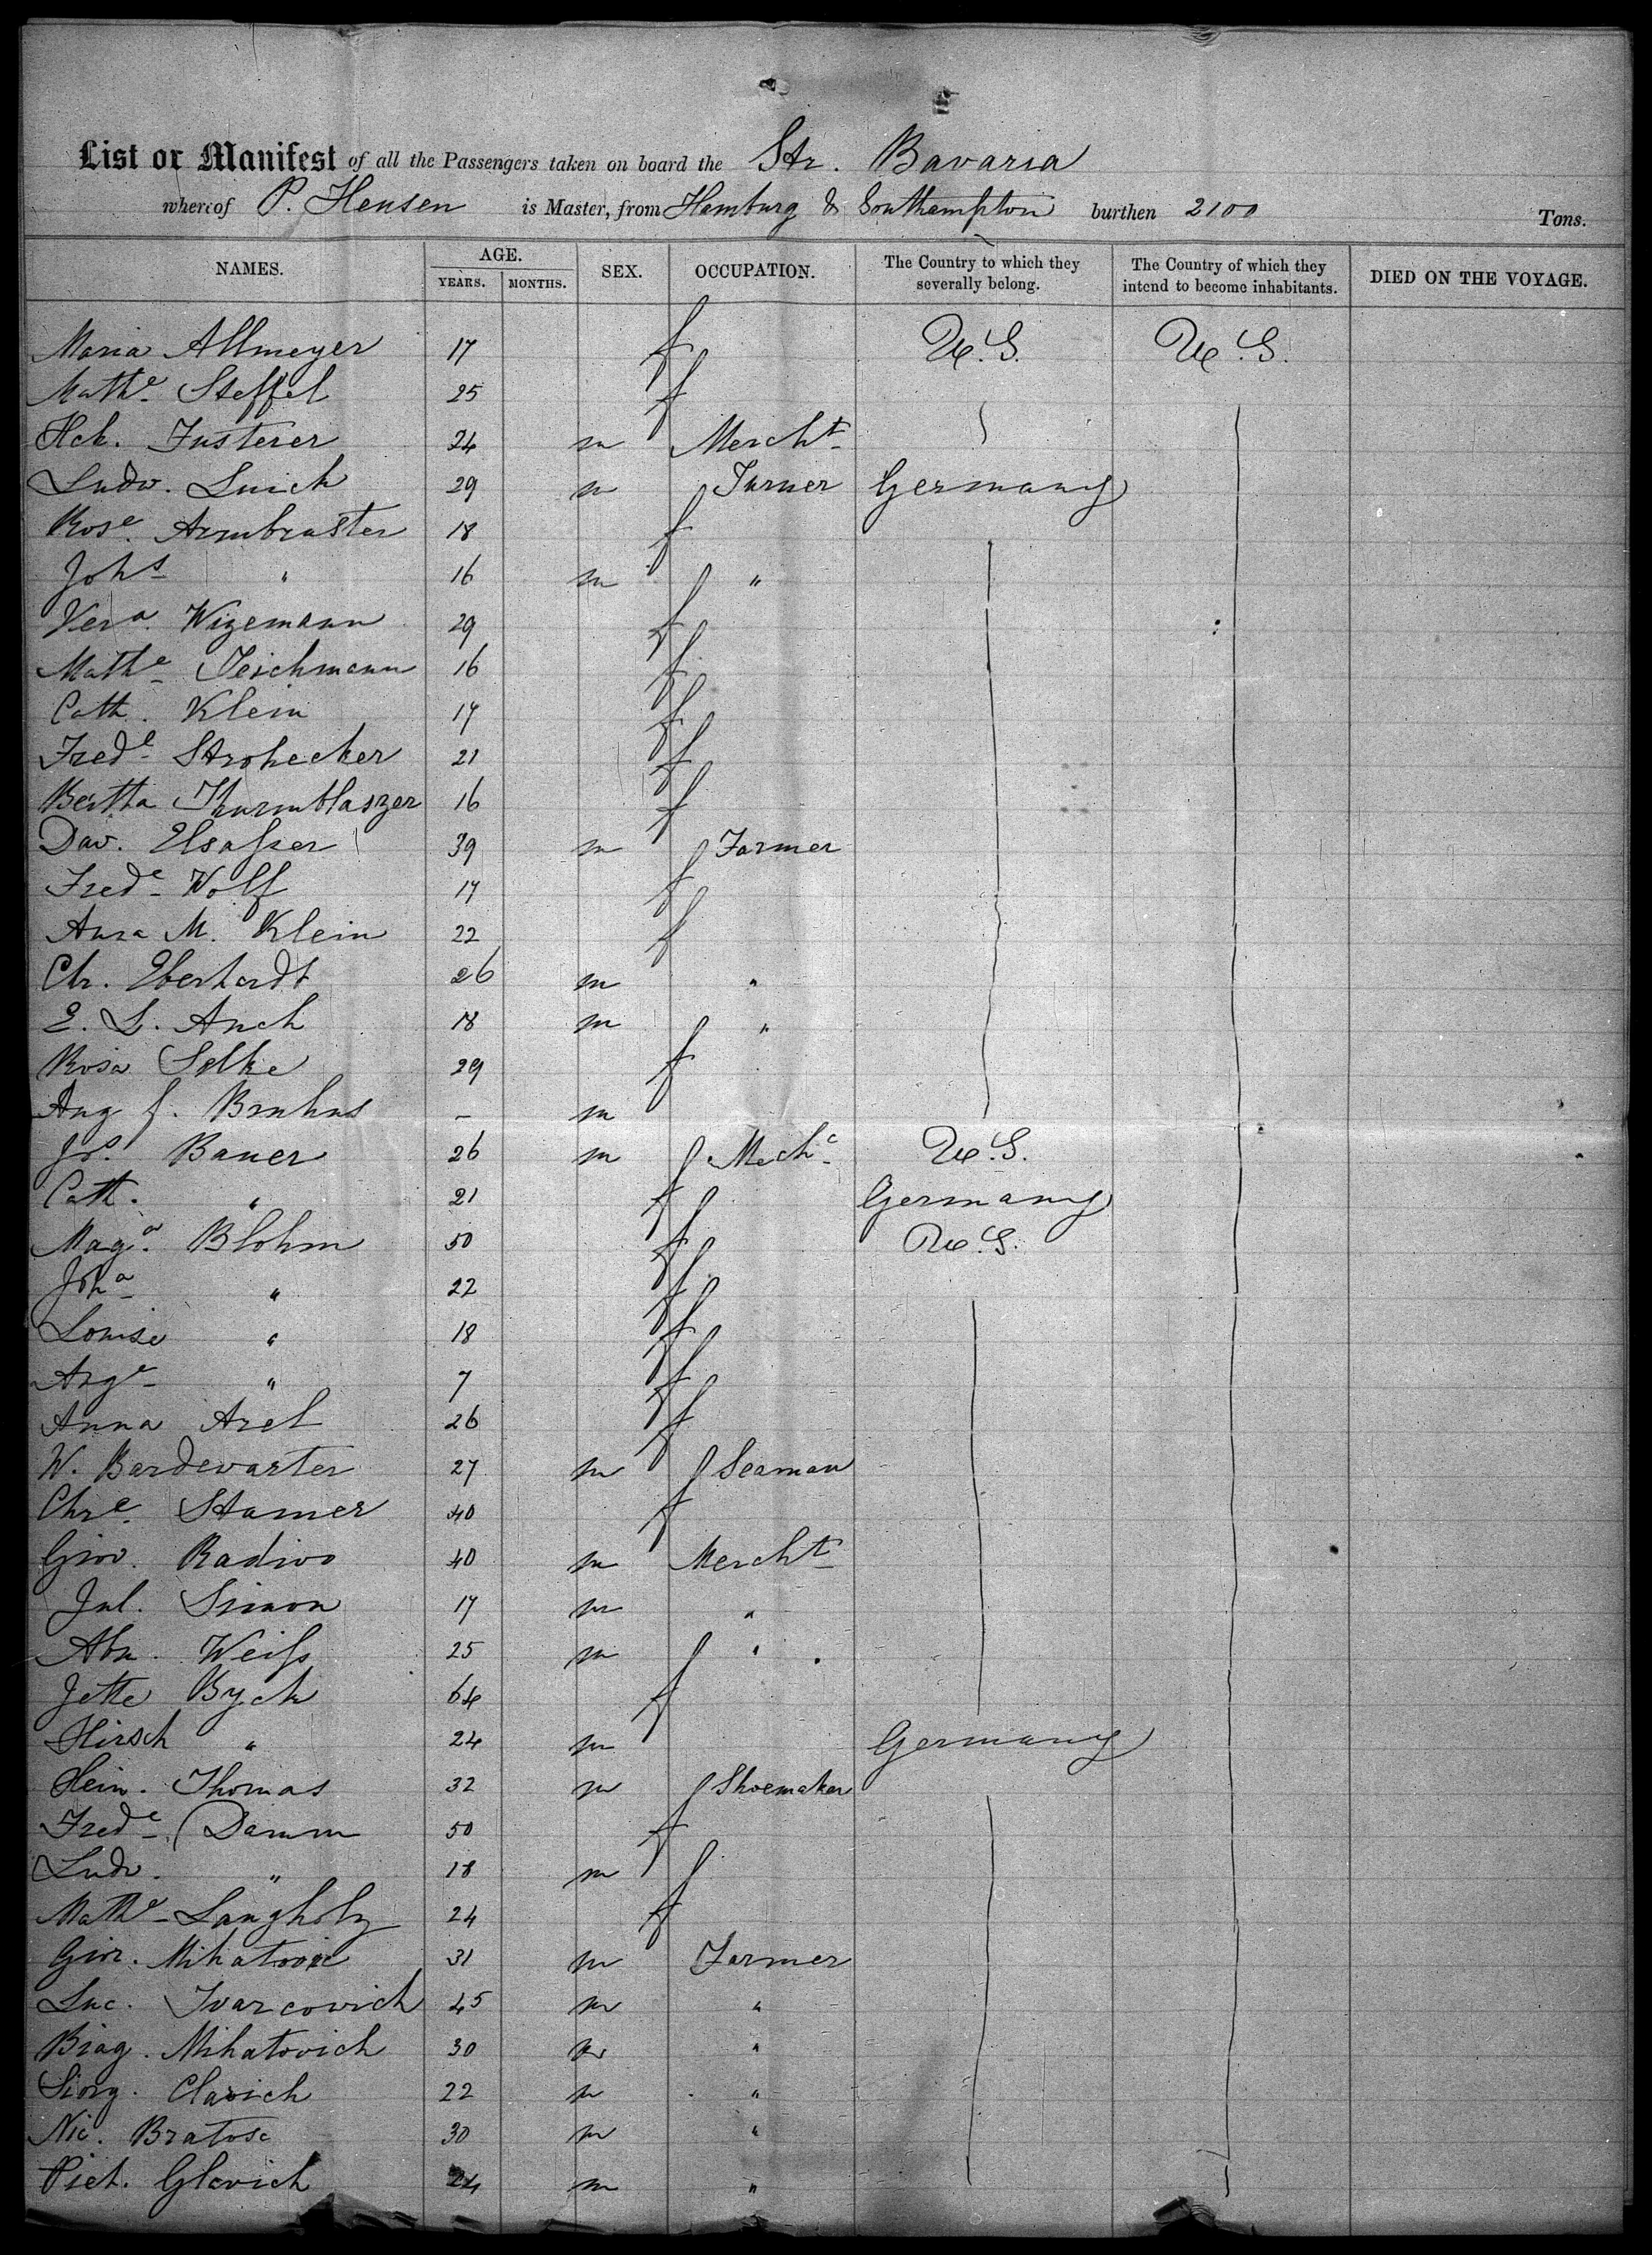 List or Manifest of all the Passengers taken on board the Str. Bavaria
whereof P. Hensen is Master, from Hamburg & Southampton burthen 2100 Tons.
NAMES. AGE. YEARS. MONTHS. SEX. OCCUPATION. The Country to which they severally belong. The Country of which they intend to become inhabitants. DIED ON THE VOYAGE.
Maria Allmeyer 17 f U.S. U.S.
Mathe Steffel 25 f
Hch. Fusterer 24 m Mercht
Ludw. Luick 29 m Turner Germany
Rose. Armbruster 18 f
Johs " 16 m "
Vera. Wizemann 29 f
Mathe Teichmann 16 f
Cath. Klein 17 f
Frede Strohecker 21 f
Bertha Thurmblaszer 16 f
Dav. Elsasser 39 m Farmer
Frede Wolf 17 f
Anna M. Klein 22 f
Chr. Eberhardt 26 m "
E. L. Auch 18 m "
Rosa Selke 29 f
Aug f. Bruhns – m
Js. Bauer 26 m Mechc U.S.
Cath. " 21 f Germany
Maga. Blohm 50 f U.S.
Joha " 22 f
Louise " 18 f
Auge " 7 f
Anna Axel 26 f
W. Bardewarter 27 m Seaman
Chre Stamer 40 f
Giov. Radivo 40 m Mercht
Jul. Simon 17 m "
Abr. Weiss 25 m "
Jette Byck 64 f
Hirsch " 24 m Germany
Hein. Thomas 32 m Shoemaker
Frede Damm 50 f
Ludw. " 18 m
Mathe Langholz 24 f
Gior. Mihatovic 31 m Farmer
Luc. Ivarcovich 45 m "
Biag. Mihatovich 30 m "
Giorg. Clavich 22 m "
Nic. Bratosc 30 m "
Piet. Glavich 24 m "